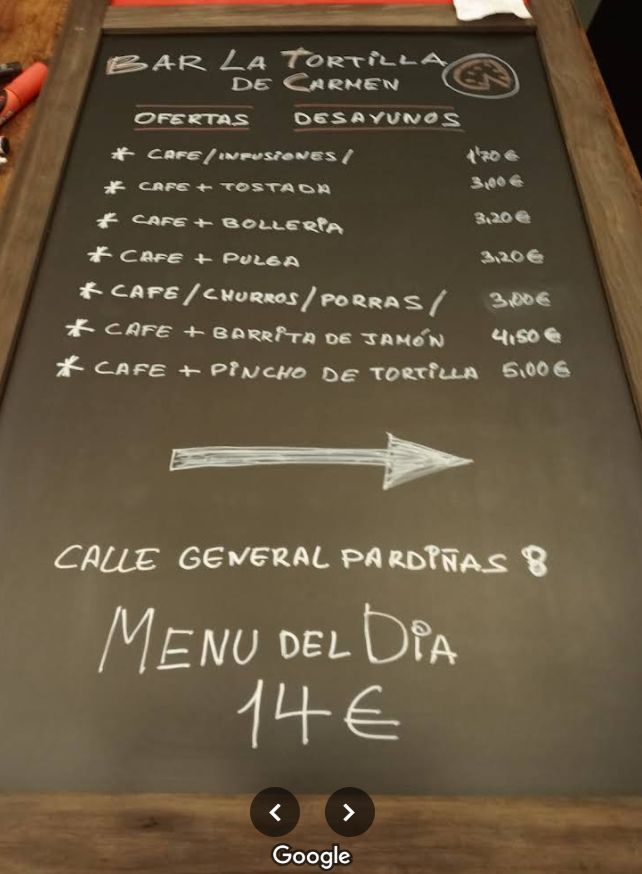 BAR LA TORTILLA
DE CARMEN
OFERTAS DESAYUNOS
* CAFE/INFUSIONES/ 1'70 €
* CAFE + TOSTADA 3,00 €
* CAFE + BOLLERIA 3,20 €
* CAFE + PULGA 3,20 €
* CAFE/CHURROS/PORRAS/ 3,00 €
* CAFE + BARRITA DE JAMÓN 4,50 €
* CAFE + PINCHO DE TORTILLA 5,00 €
CALLE GENERAL PARDIÑAS 8
MENU DEL DIA
14 €
Google